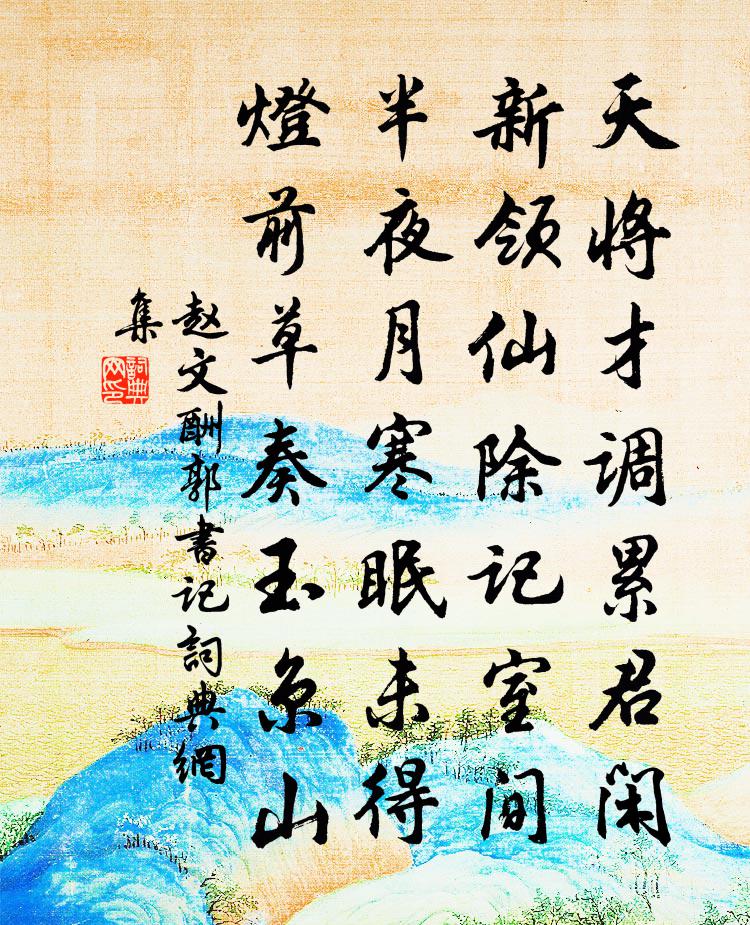 天将才调累君闲
新领仙除记室间
半夜月寒眠未得
燈前草奏玉京山
赵文酬郭書记詞典網
集
詞典
网印